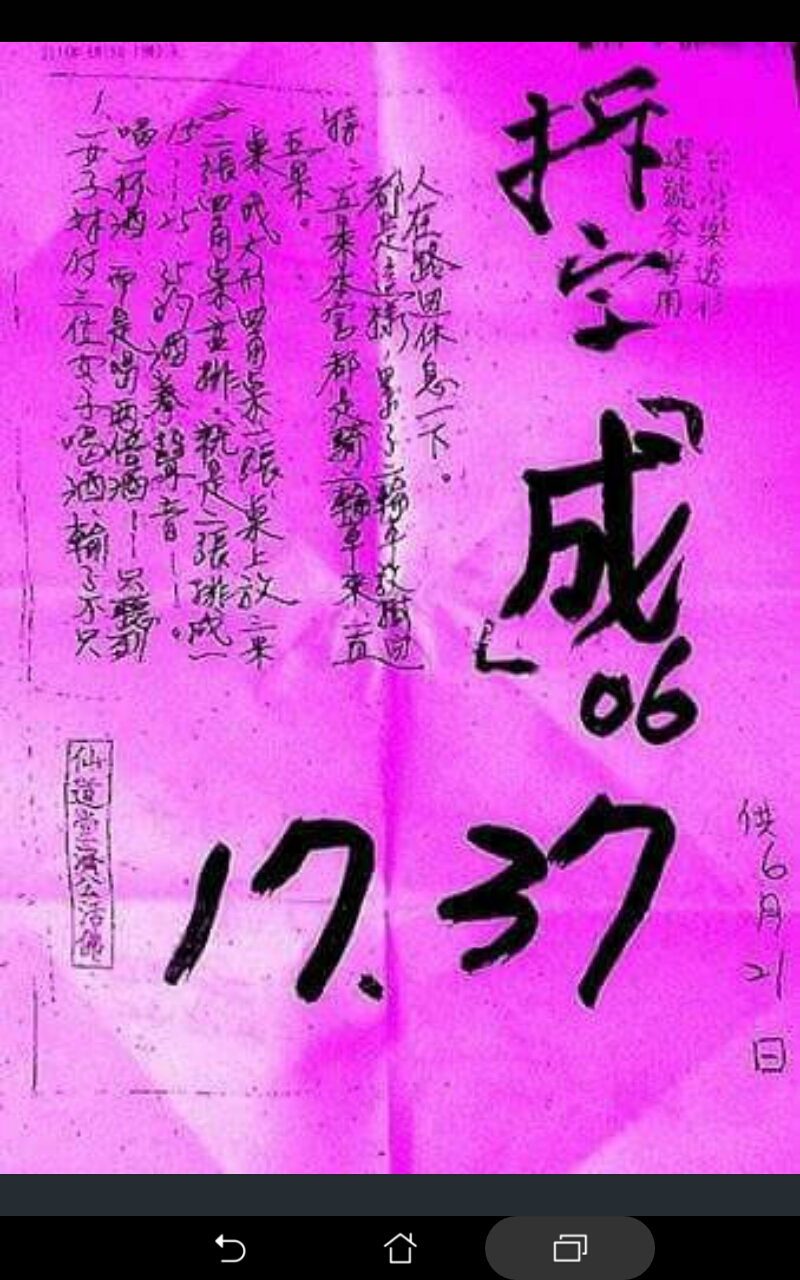 供6月21日
台灣樂透彩
選號參考用
拆字「成」06
17. 37
1、女子妹付三位女子喝酒、輸了不只
喝一杯酒、而是喝兩倍酒——只聽到
15——25、35的酒拳聲音——。
2、二張四角桌並排。就是二張排成一
桌、成大形四角桌一張、桌上放二米
五果。
都是這樣,累了二輪車放樹邊
人在路邊休息一下。
仙道堂濟公活佛